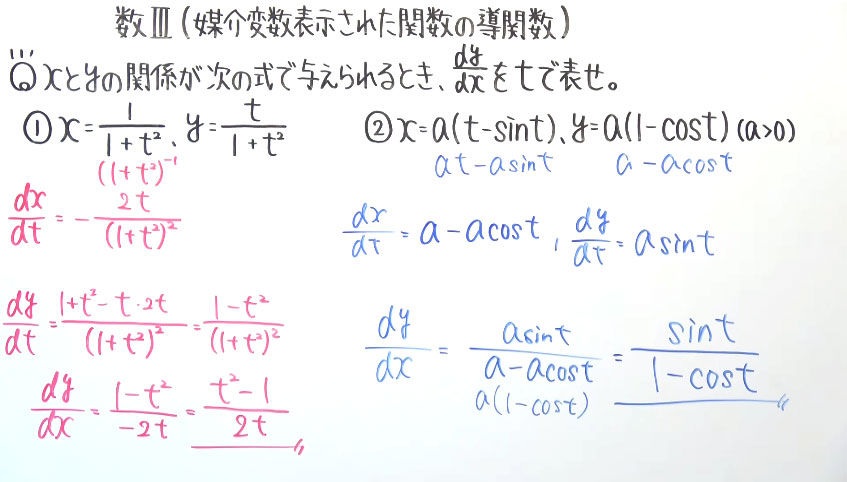 数Ⅲ(媒介変数表示された関数の導関数)
Q xとyの関係が次の式で与えられるとき、dy/dxをtで表せ。
① x=1/(1+t²)、y=t/(1+t²)
(1+t²)⁻¹
dx/dt = -2t/(1+t²)²
dy/dt = (1+t²-t·2t)/(1+t²)² = (1-t²)/(1+t²)²
dy/dx = (1-t²)/(-2t) = (t²-1)/(2t)
② x=a(t-sint)、y=a(1-cost)(a>0)
at-asint a-acost
dx/dt = a-acost, dy/dt = asint
dy/dx = asint/(a-acost) = sint/(1-cost)
a(1-cost)